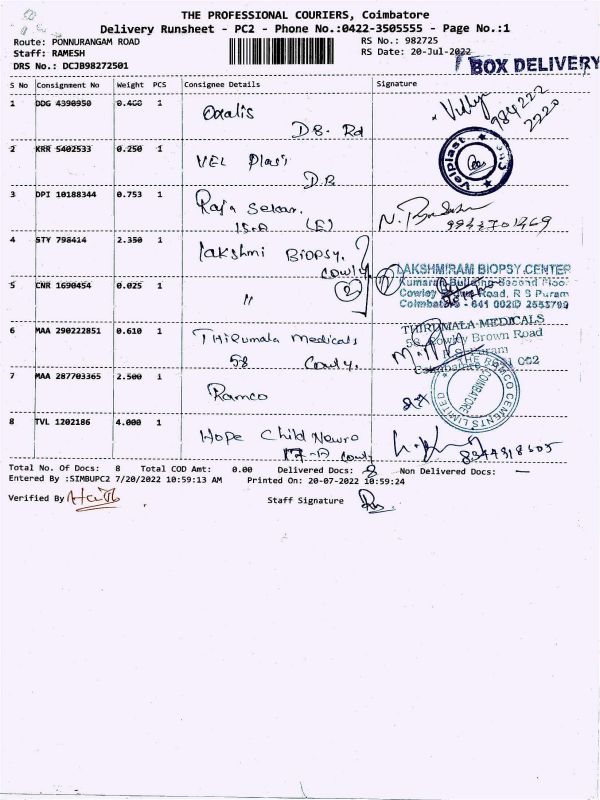 THE PROFESSIONAL COURIERS, Coimbatore
Delivery Runsheet - PC2 - Phone No.:0422-3505555 - Page No.:1
Route: PONNURANGAM ROAD
RS No.: 982725
Staff: RAMESH
RS Date: 20-Jul-2022
DRS No.: DCJB98272501
BOX DELIVERY
S No Consignment No Weight PCS Consignee Details Signature
1 DDG 4390950 0.460 1 Oxalis
D.B. Rd
2 KRR 5402533 0.250 1 VEL Plast
D.B
Velplast Cbe
3 DPI 10188344 0.753 1 Raja Sekar.
15-A (E)
9943701469
4 STY 798414 2.350 1 Lakshmi BIOPSY.
cowly
2
LAKSHMIRAM BIOPSY CENTER
Kumaran Building Second Floor
5 CNR 1690454 0.025 1 "
Cowley Brown Road, R S Puram
Coimbatore - 641 002
6 MAA 290222851 0.610 1 THiRumala Medicals
58 Cowly.
THIRUMALA MEDICALS
58, Cowley Brown Road
R.S. Puram
Coimbatore 641 002
7 MAA 287703365 2.500 1 Ramco
THE RAMCO CEMENTS LIMITED
COIMBATORE
8 TVL 1202186 4.000 1 Hope Child Neuro
17-A cowly
8344318505
Total No. Of Docs: 8 Total COD Amt: 0.00 Delivered Docs: 8 Non Delivered Docs: —
Entered By :SIMBUPC2 7/20/2022 10:59:13 AM Printed On: 20-07-2022 10:59:24
Verified By
Staff Signature